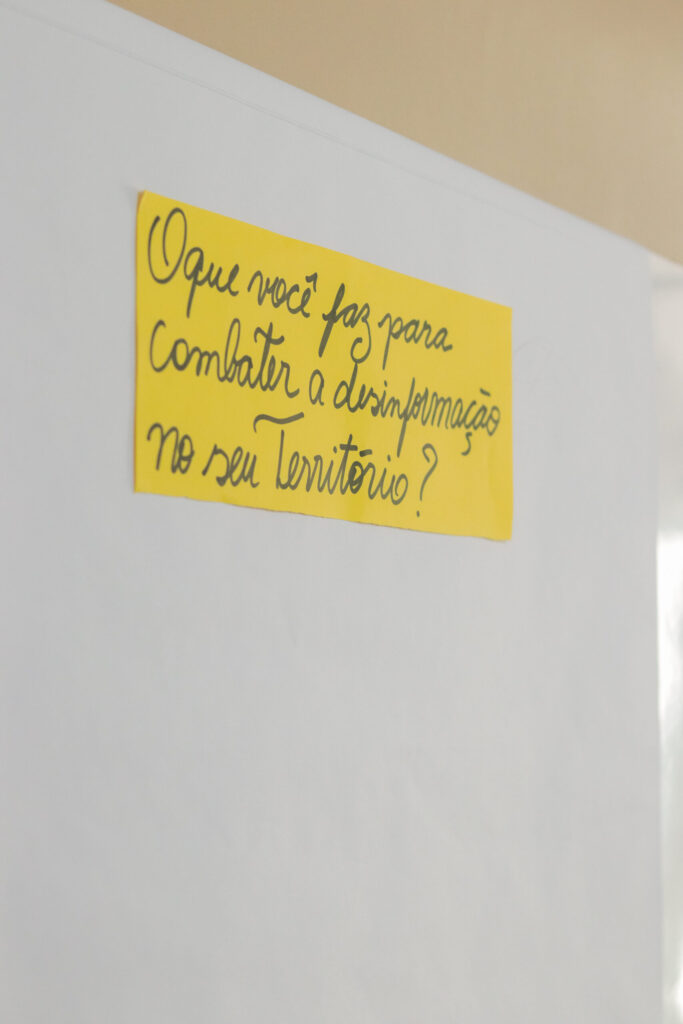 O que você faz para
combater a desinformação
no seu Território?